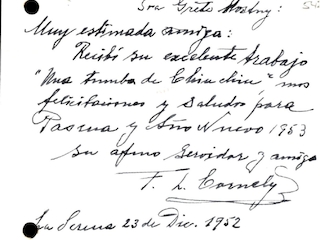 Sra Grete Mostny:
Muy estimada amiga:
Recibí su excelente trabajo
"Una tumba de Chiu chiu", mis
felicitaciones y saludos para
Pascua y Año Nuevo 1953
su afmo servidor y amigo
F. L. Cornely
La Serena 23 de Dic. 1952